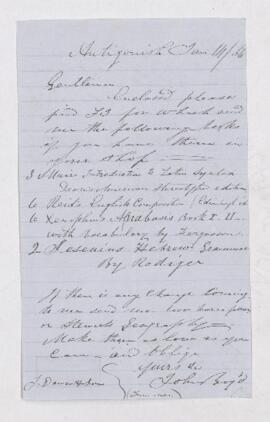 Antigonish Jan 14/56
Gentlemen
Enclosed please
find £3 for which send
me the following books
if you have them in
your shop
3 Introduction to Latin Syntax
American Stereotype edition
6 Reids English Composition
6 Xenophons Anabasis Book I. II
with Vocabulary by Ferguson
2 Gesenius Hebrew Grammar
By Rodiger
If there is any change coming
to me send me
or Geography
Make them as low as you
can and oblige
Yours &c
John Boyd
J. Dawson & Son